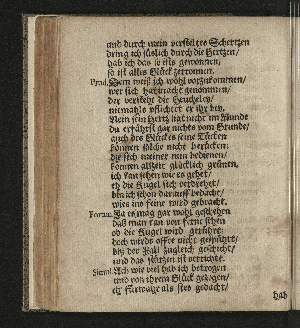 und durch mein verstelltes Schertzen
dring ich süslich durch die Hertzen/
hab ich das so ists gewonnen/
so ist alles Glück zerronnen.
Prud. Dem weiß ich wohl vorzukommen/
wer sich hat genommen/
der versteht die Heucheley/
niemahls pflichtet er ihr bey.
Nein sein Hertz hat nicht im Munde
du erfährst gar nichts vom Grunde/
auch des Glückes seine Tücken
können solche nicht berücken:
die sich meiner nun bedienen/
können allzeit glücklich grünen,
ich kan sehen wie es gehet/
eh die Kugel sich verdrehet/
bin ich schon darauff bedacht/
wies ins feine wird gebracht.
Fortun. Ja es mag gar wohl geschehen
daß man kan von ferne sehen
ob die Kugel wird gerühret:
doch wirds offte nicht gespühret/
biß der Fall zugleich geschicht/
und das stürtzen ist verrichtet.
Simul. Ach wie viel hab ich betrogen
und von ihrem Glück gezogen/
eh fürwahr als sies gedacht/
hab